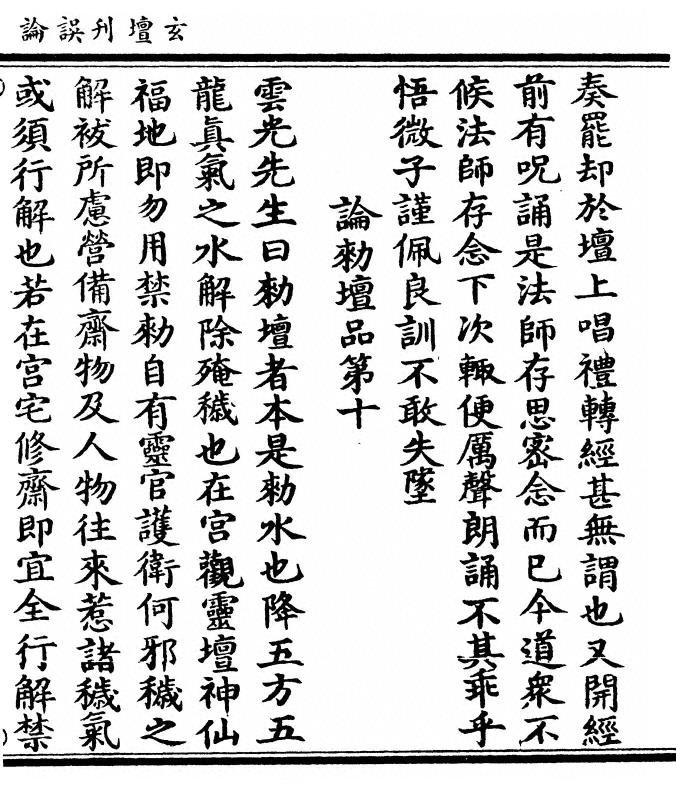 玄壇刋誤論
奏罷却於壇上唱禮轉經甚無謂也又開經
前有呪誦是法師存思密念而已今道衆不
候法師存念下次輙便厲聲朗誦不其乖乎
悟微子謹佩良訓不敢失墜
論勑壇品第十
雲光先生曰勑壇者本是勑水也降五方五
龍眞氣之水解除殗穢也在宮觀靈壇神仙
福地即勿用禁勑自有靈官護衛何邪穢之
解祓所慮營備齋物及人物往來惹諸穢氣
或須行解也若在宫宅修齋即宜全行解禁